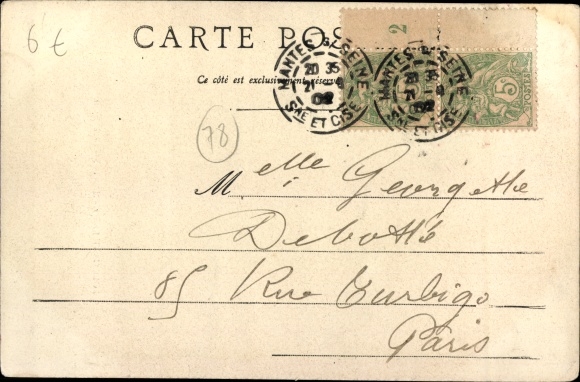 6€
CARTE POS
2
Ce côté est exclusivement réservé
MANTES S/ SEINE
20 35
21 -8
02
SNE ET OISE
MANTES S/ SEINE
20 35
21 -8
02
SNE ET OISE
5
POSTES
78
Melle Georgette
85 Rue Turbigo
Paris